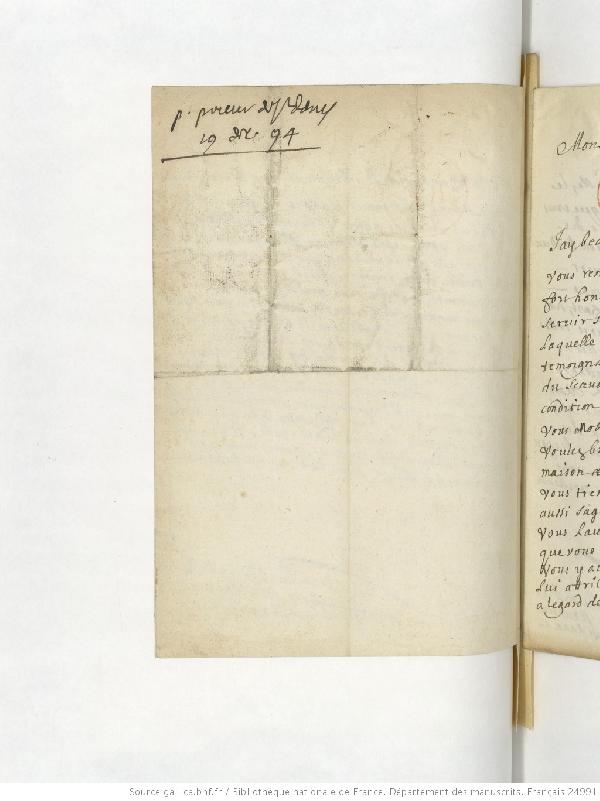 p. prieur de St Denys
19 xbre 94
Mons
J'ay bea
vous ren
fort hon
servir s
laquelle
temoigna
du sceau
condition
vous Mos
voulez b
maison
vous tien
aussi sag
vous lau
que vous
vous y a
lui
a legard de
Source gallica.bnf.fr / Bibliothèque nationale de France. Département des manuscrits. Français 24991